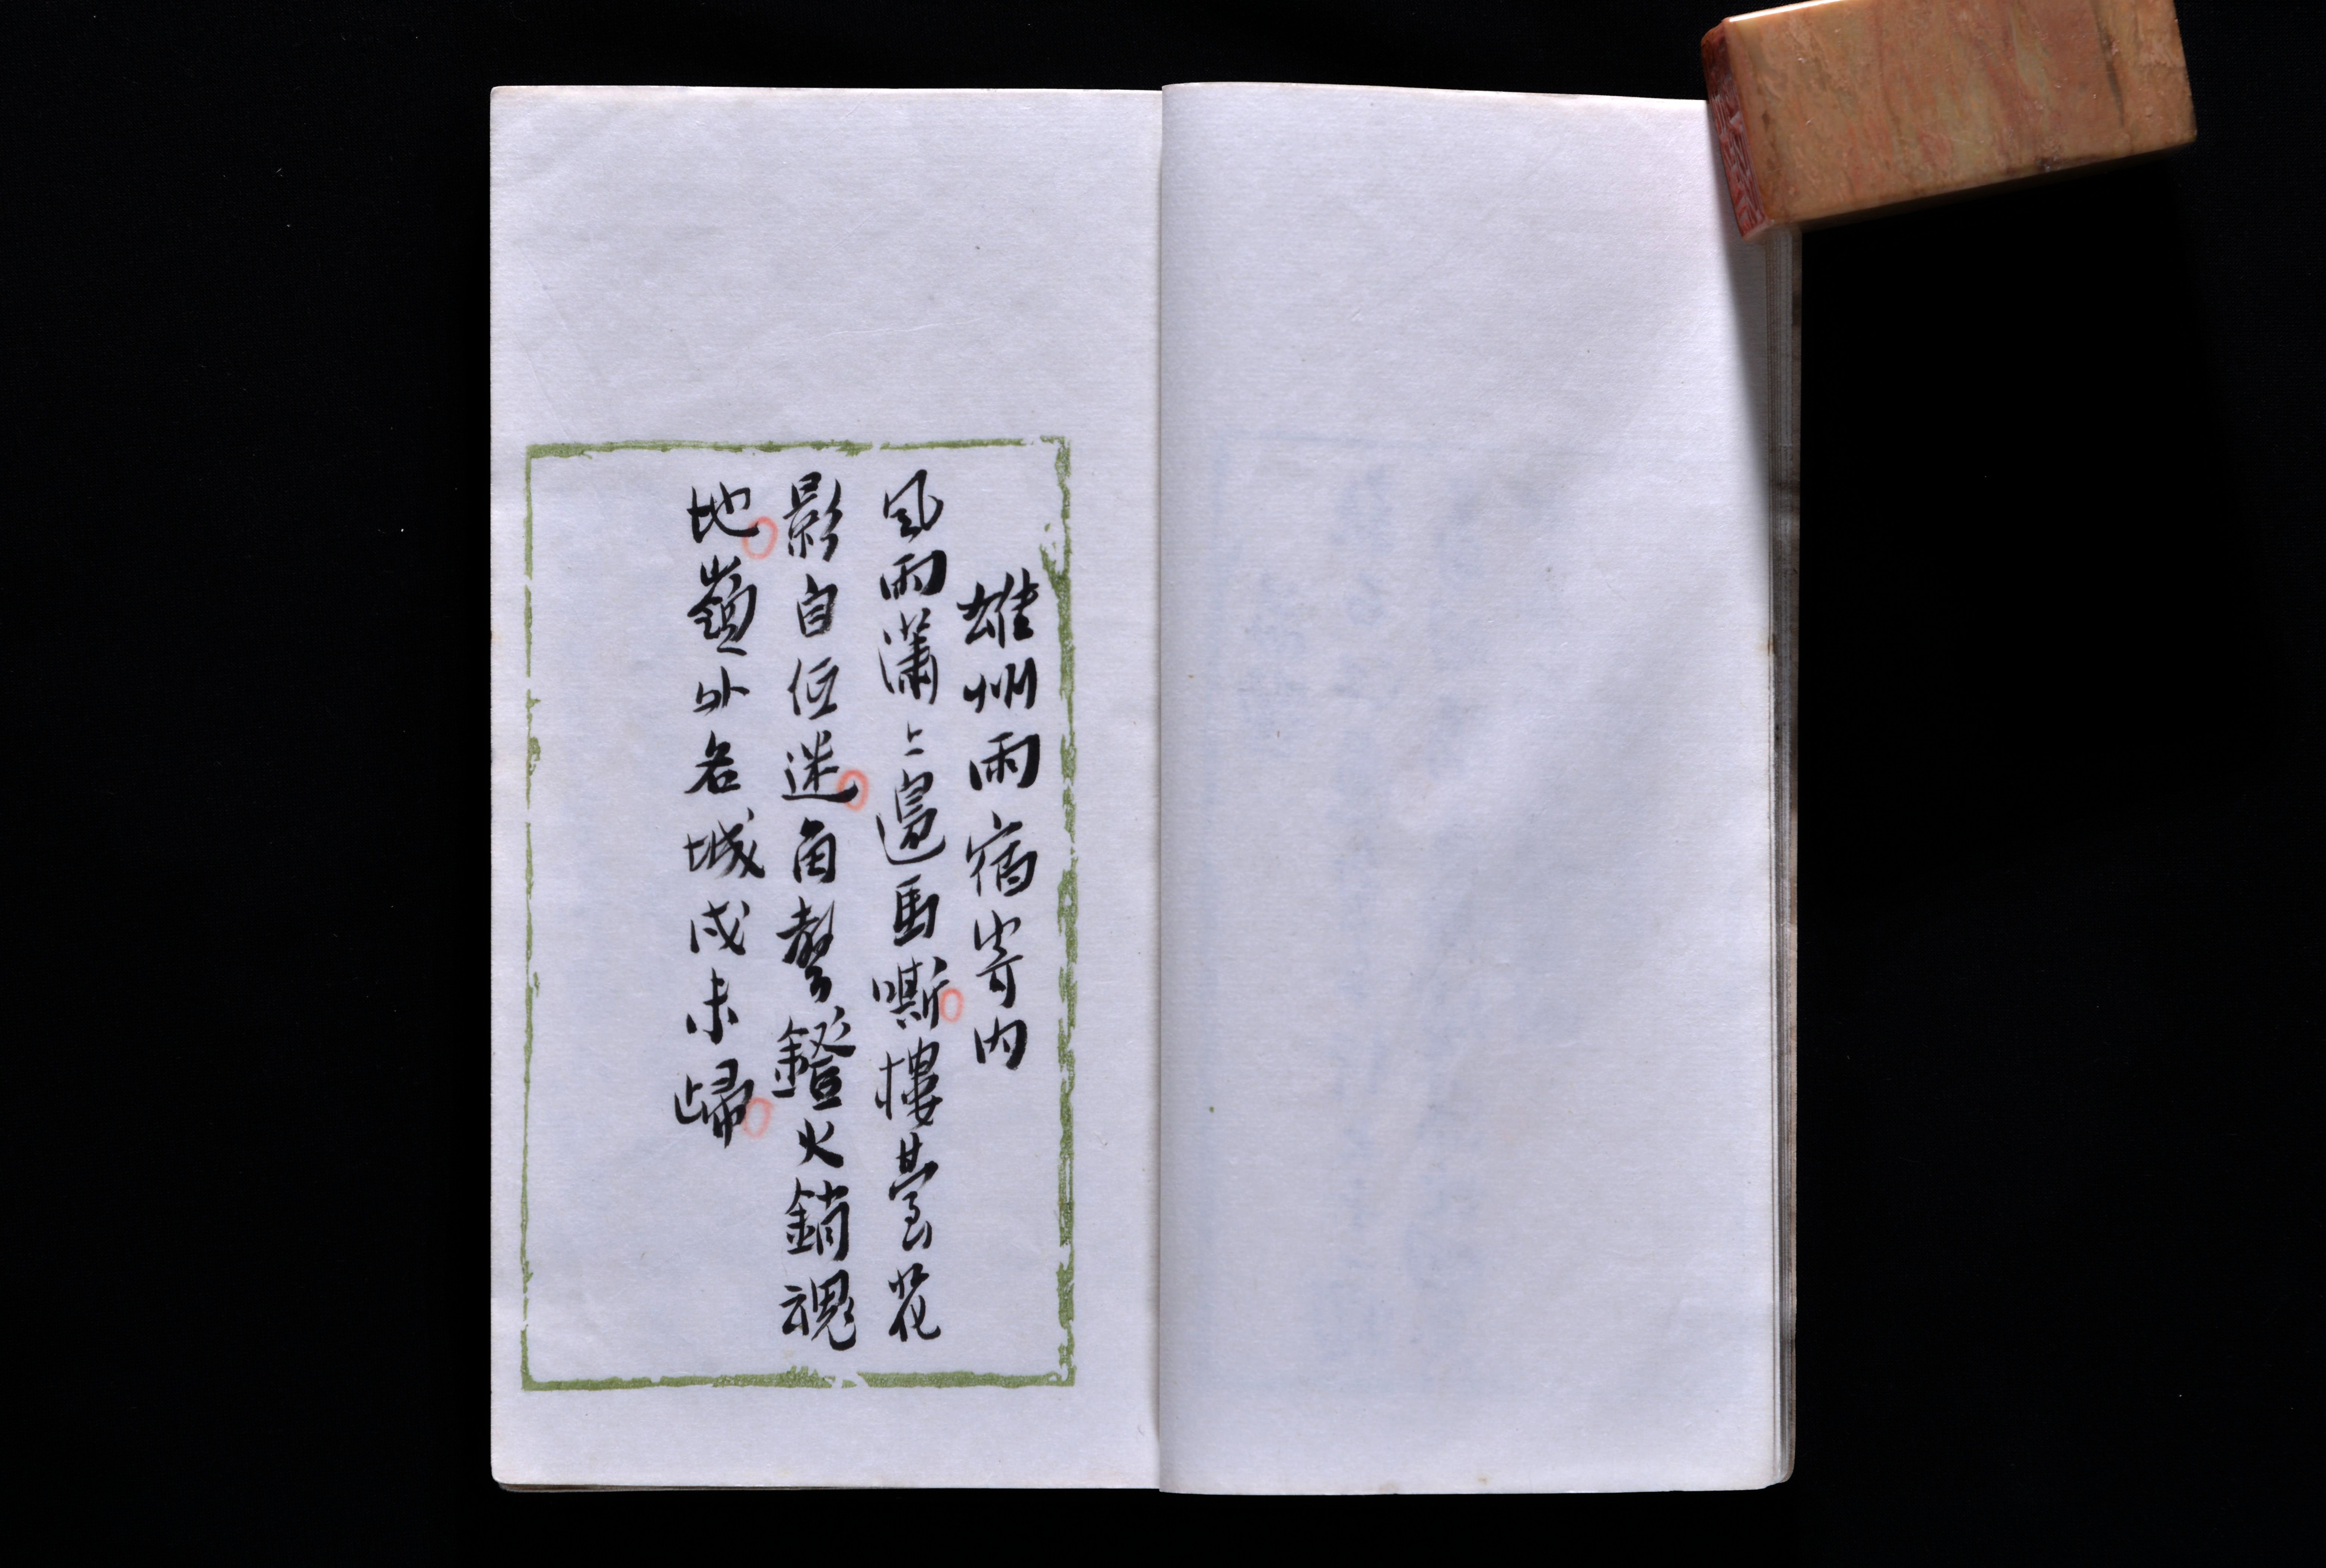 雄州雨宿寄内
風雨瀟〻邊馬嘶樓臺花
影自低迷角聲鐙火銷魂
地嶺外名城戍未歸